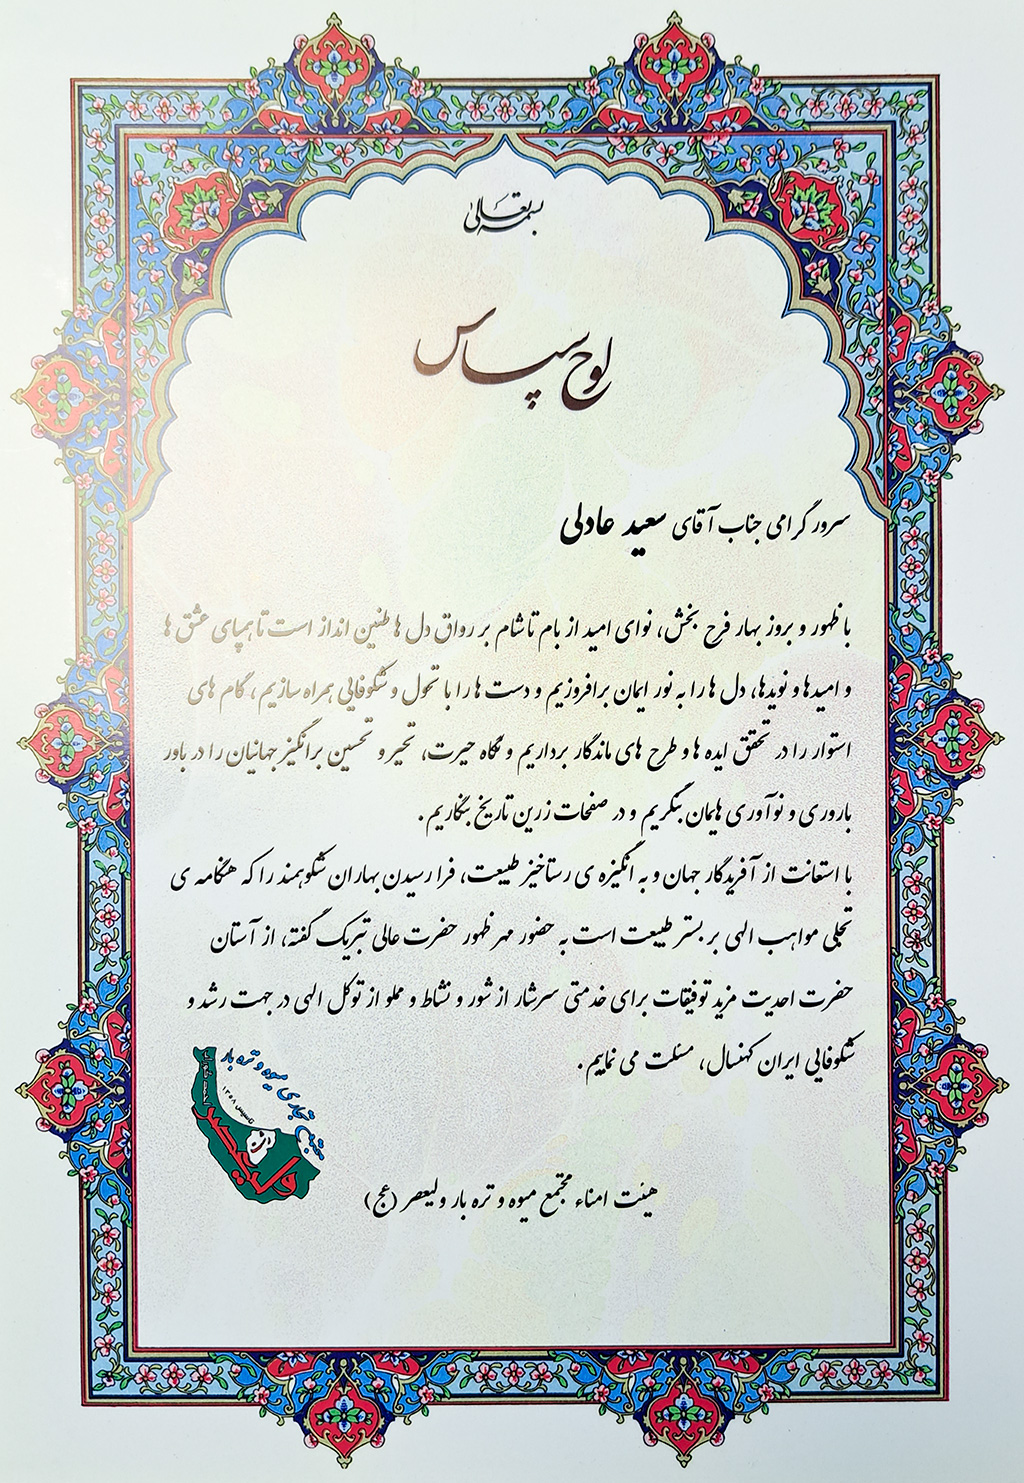 بسمه تعالی
لوح سپاس
سرور گرامی جناب آقای سعید عادلی
با ظهور و بروز بهار فرح بخش، نوای امید از بام تا شام بر رواق دل ها طنین انداز است تا همپای عشق ها
و امیدها و نویدها، دل ها را به نور ایمان برافروزیم و دست ها را با تحول و شکوفایی همراه سازیم، گام های
استوار را در تحقق ایده ها و طرح های ماندگار برداریم و نگاه حیرت، تحیر و تحسین برانگیز جهانیان را در باور
باروری و نوآوری هایمان بنگریم و در صفحات زرین تاریخ بنگاریم.
با استعانت از آفریدگار جهان و به انگیزه ی رستاخیز طبیعت، فرا رسیدن بهاران شکوهمند را که هنگامه ی
تجلی مواهب الهی بر بستر طبیعت است به حضور مهر ظهور حضرت عالی تبریک گفته، از آستان
حضرت احدیت مزید توفیقات برای خدمتی سرشار از شور و نشاط و مملو از توکل الهی در جهت رشد و
شکوفایی ایران کهنسال، مسئلت می نماییم.
مجتمع تجاری میوه و تره بار
تاسیس ۱۳۵۸
ولیعصر
هیئت امناء مجتمع میوه و تره بار ولیعصر (عج)